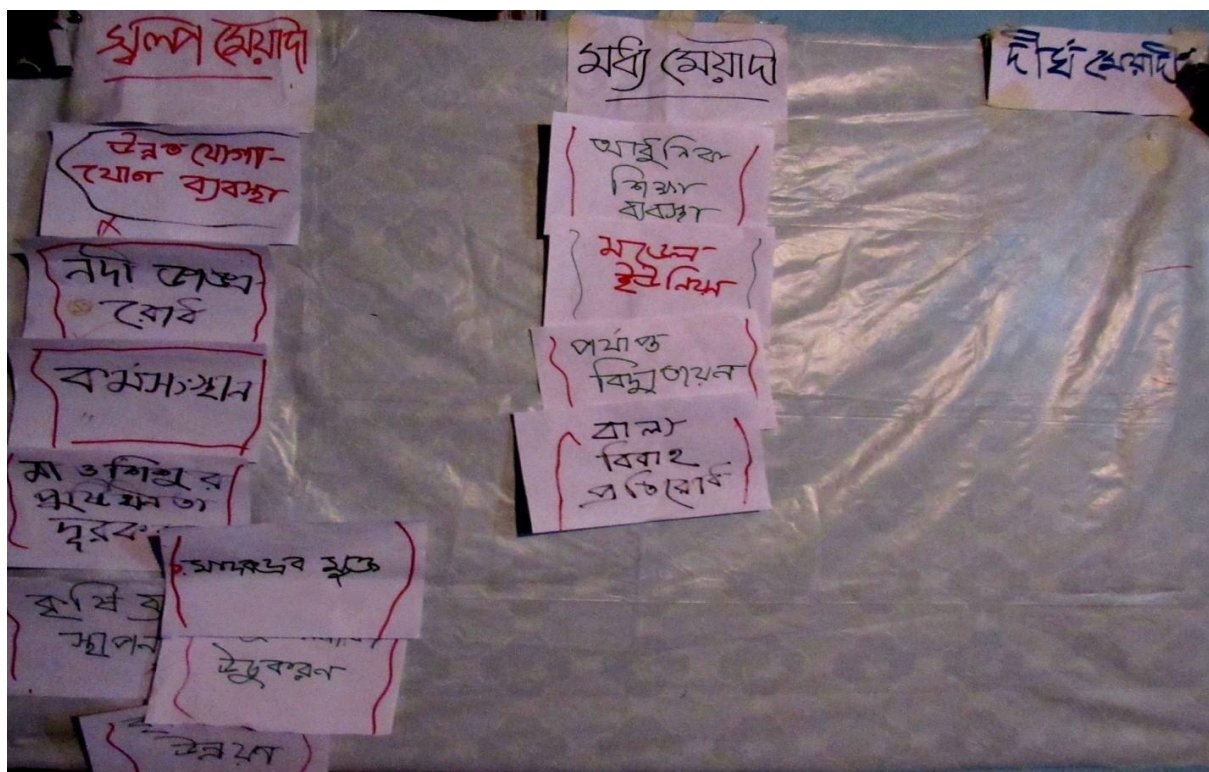 স্বল্প মেয়াদী
উন্নত যোগা-
যোগ ব্যবস্থা
নদী ভাঙ্গন
রোধ
কর্মসংস্থান
মা ও শিশুর
দূরক
মাদকদ্রব মুক্ত
কৃষি ব্য
স্থাপন
উচুকরণ
উন্নয়ণ
মধ্য মেয়াদী
আধুনিক
শিক্ষা
ব্যবস্থা
মডেল
ইউনিয়ন
পর্যাপ্ত
বিদ্যুতায়ন
বাল্য
বিবাহ
প্রতিরোধ
দীর্ঘ মেয়াদী